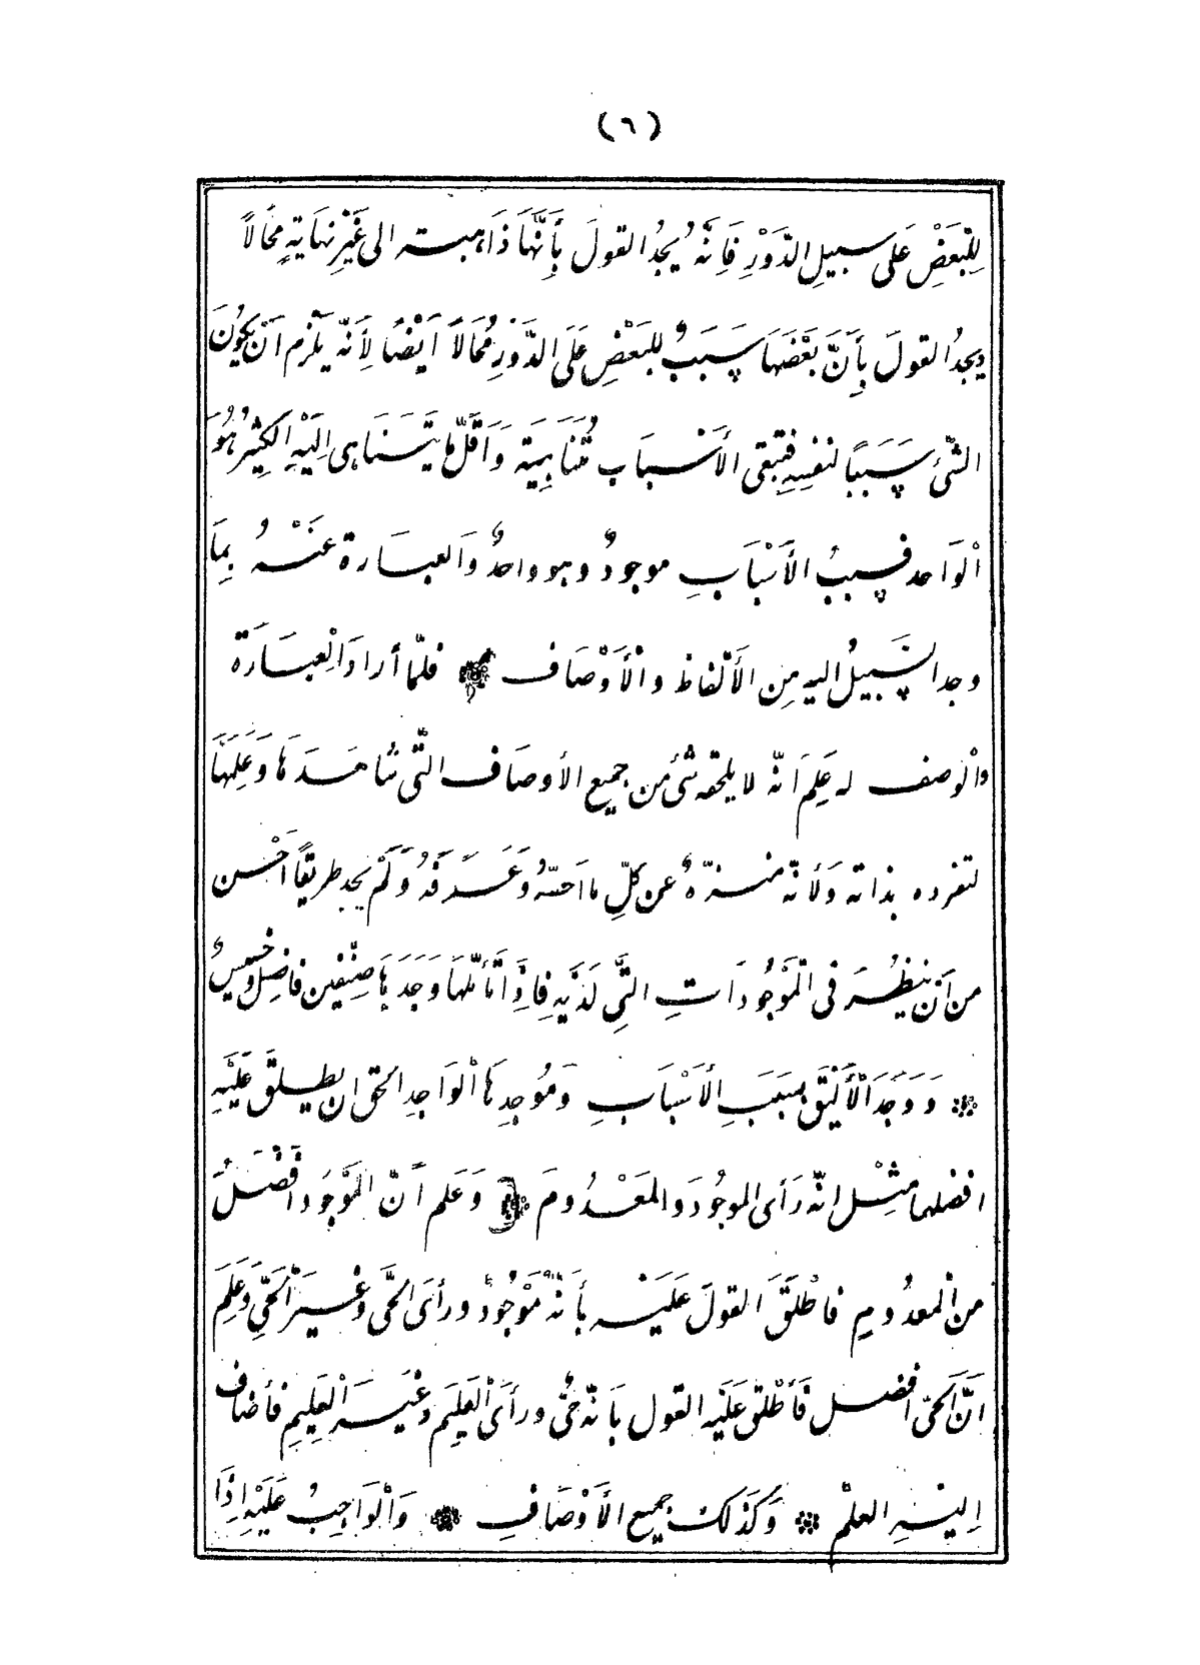 (٦)
لِلْبَعْضِ عَلَى سبيلِ الدَّوْرِ فَاِنَّهُ يجدُ القولَ بِأَنَّهَا ذَاهبة الى غَيْرِ نِهَايَةٍ مُحَالاً
ويجدُ القولَ بِأَنَّ بَعْضَهَا سَبَبٌ لِلبَعْضِ عَلَى الدَّوْرِ مُحَالاً اَيْضًا لِأَنَّهُ يَلْزم اَنْ يَكُونَ
الشّئ سَبَبًا لنفسِهِ فتبقى الأَسْبَاب مُتَنَاهِيَة وَاَقَلُّ مَا يَتَنَاهى اِلَيْهِ الكَثِيْرُ هُوَ
اْلوَاحد فسببُ الأَسْبَابِ موجودٌ وهو واحدٌ وَالعبَارة عَنْهُ بِمَا
وجد السَّبِيلُ اليه مِن الأَلْفَاظ والْأَوْصَاف ۞ فلمّا أراد اَلْعِبَارَة
واْلوصف له عَلِمَ انّه لا يلحقه شئ من جميع الأوصَاف الّتى شَاهَدَهَا وَعَلِمَهَا
لتفرده بذاته وَلأنّه منزّهٌ عن كلّ ما اَحسّهُ وَعَرَفَهُ وَلَمْ يجد طريقًا اَحْسن
من اَن ينظُرَ فى الْمَوْجُودَاتِ التَّى لَدَيْهِ فَاِذَا تَأمَّلَهَا وَجَدَهَا صِنْفين فاضل وخسيسٌ
۞ وَوَجَدَ الْأَلْيَقَ بسَبَبِ الأَسْبَابِ وَمُوجِدِهَا اْلوَاحِدِ الحق ان يطلقَ عَلَيْهِ
افضلها مثْل انّه رَأى الموجُودَ وَالمَعْدُومَ ۞ وَعَلم اَنّ المَوْجُودَ افْضَلُ
من المعدُومِ فاطْلَقَ القولَ عَلَيْه بأَنَّهُ مَوْجُودٌ ورأى الحَّى وغَيرَ الحَيِّ وَعَلِمَ
اَنَّ الحَىّ افضل فَأَطْلقَ عَلَيْهِ القول بَاَنّه حَىٌّ ورأَى الْعَلِيَم وغَيرَ الْعَلِيمِ فأضَاف
اِليْهِ العلْم ۞ وَكَذَلك جميع الأَوْصَافِ ۞ وَالْوَاجِبُ عَلَيْهِ اِذَا